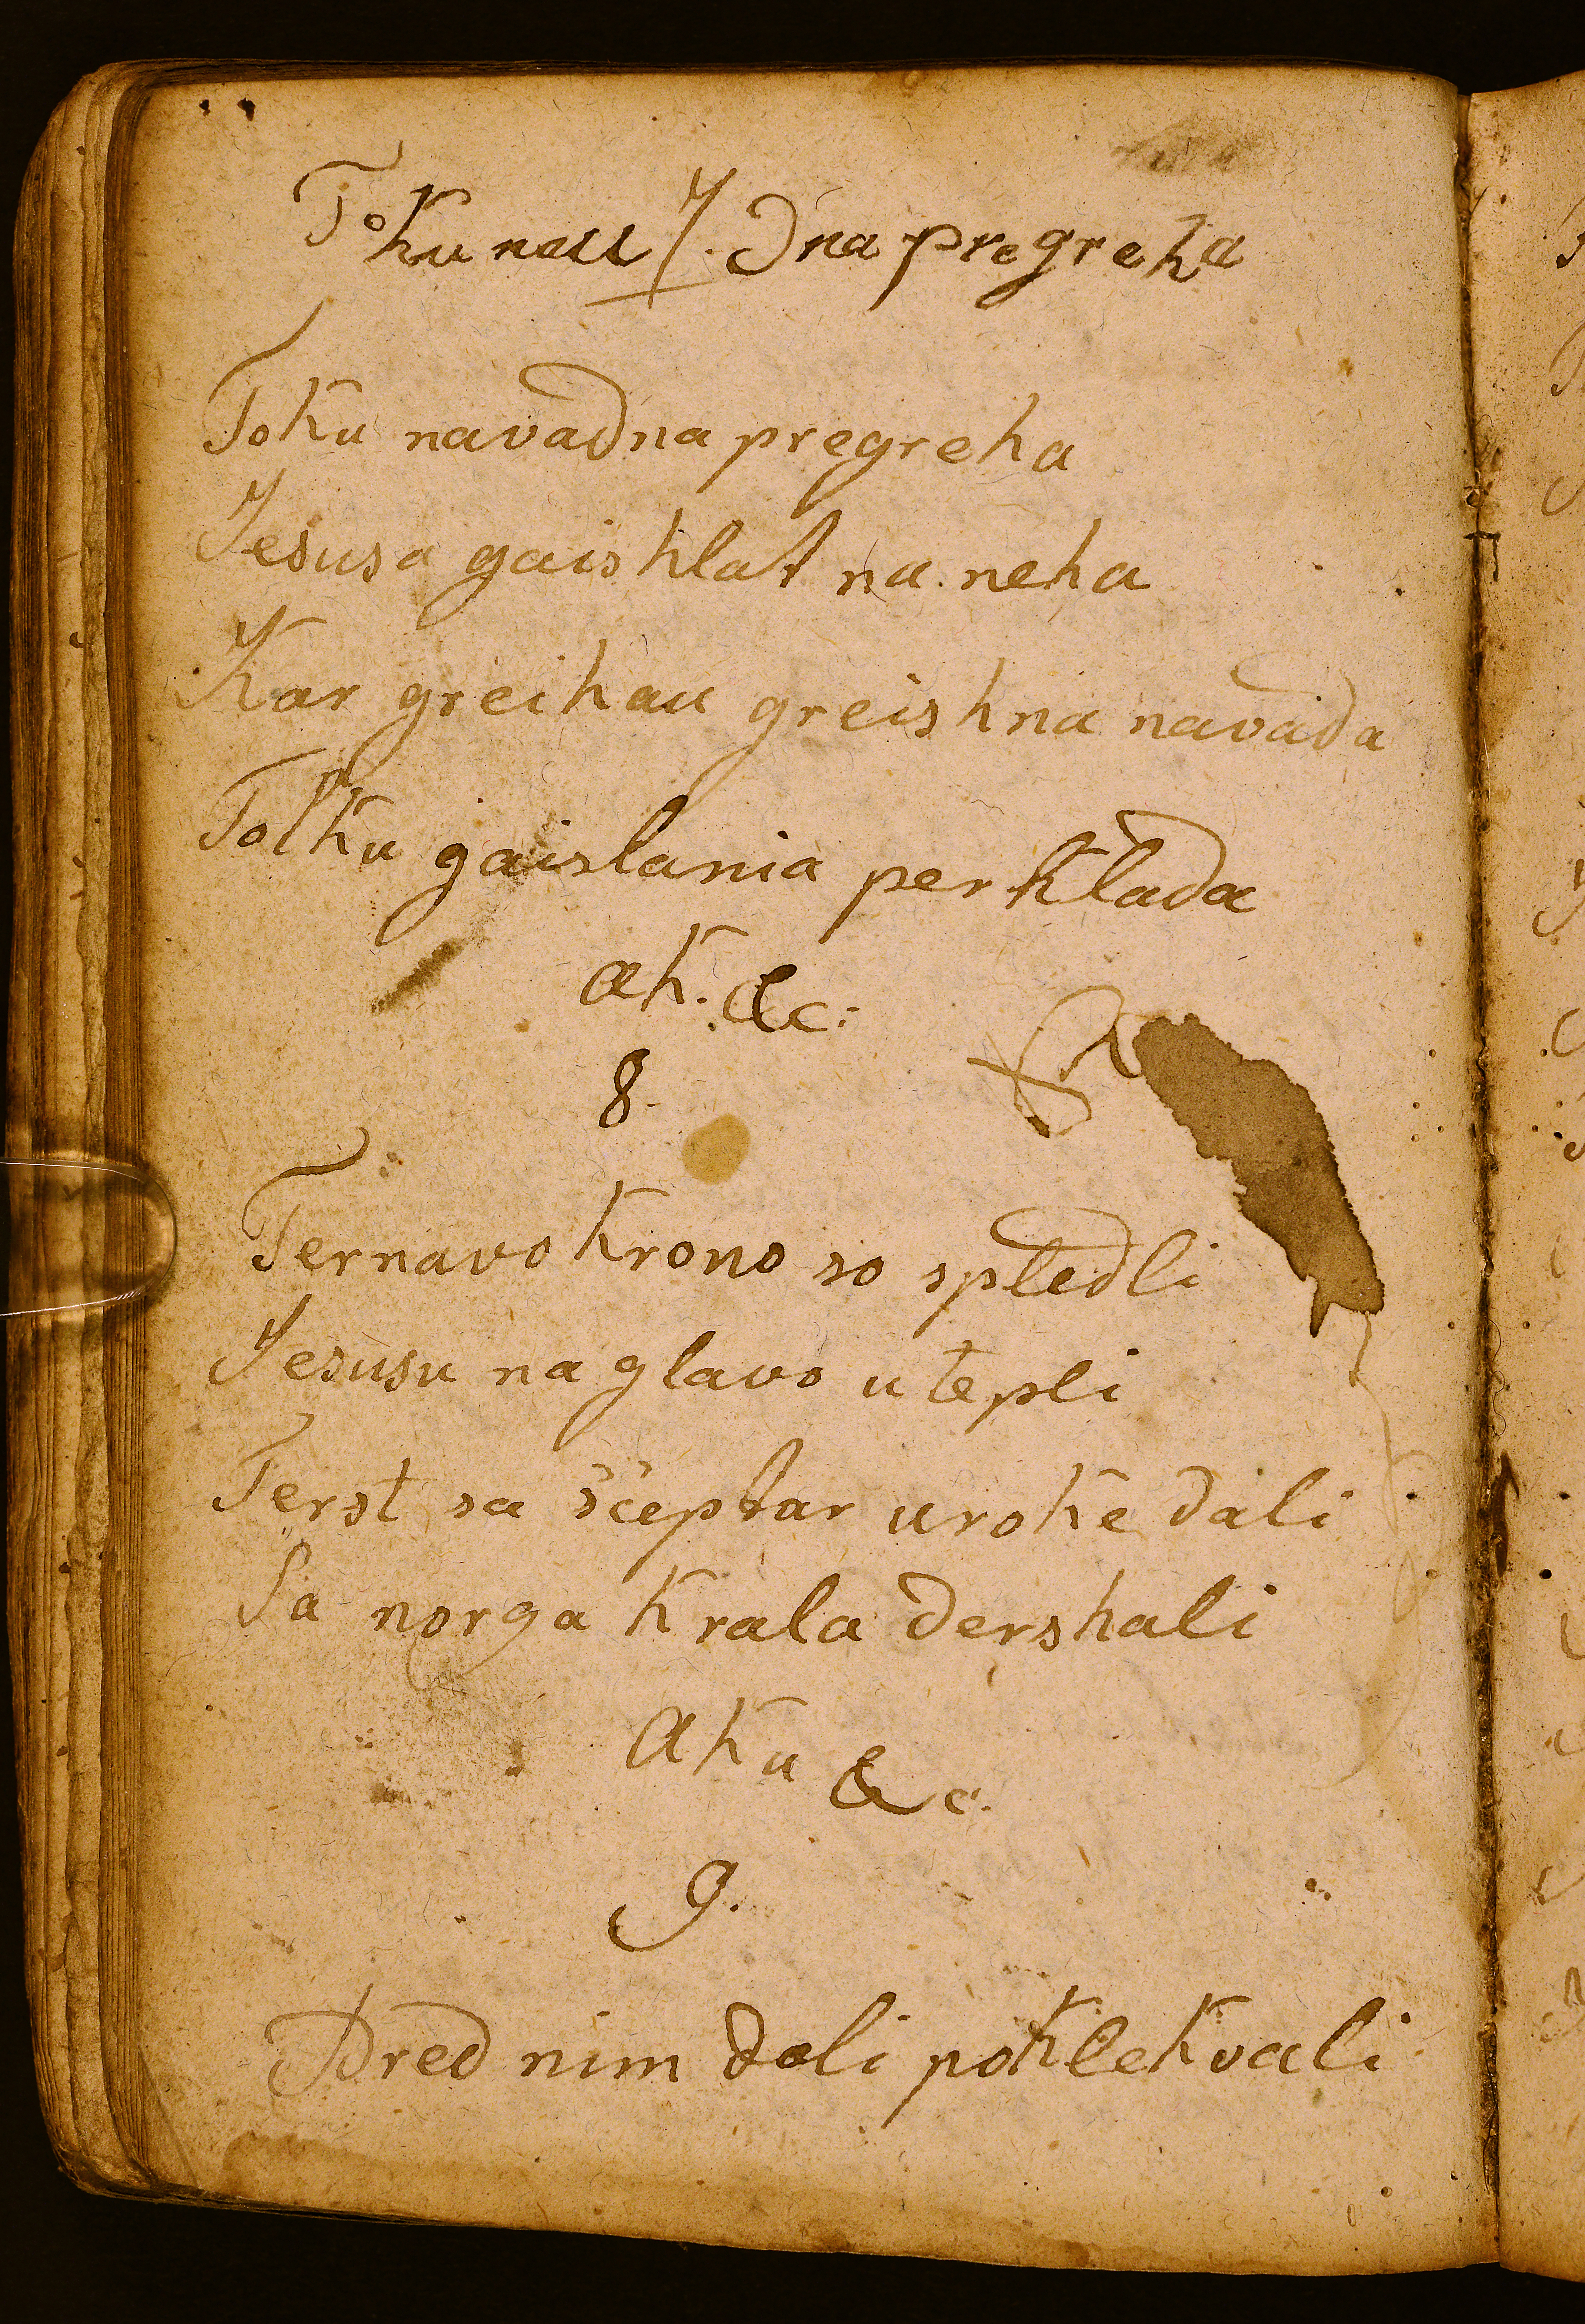 Toku nau 7. dna pregreha
Toku navadna pregreha
Jesusa gaishlat na neha
Kar greihau greishna navada
Tolku gaislania perklada
ak. &c:
8.
Ternavo krono so spledli
Jesusu na glavo utepli
Terst sa sceptar uroke dali
Sa norga krala dershali
aku &c.
9.
Pred nim doli poklekvali